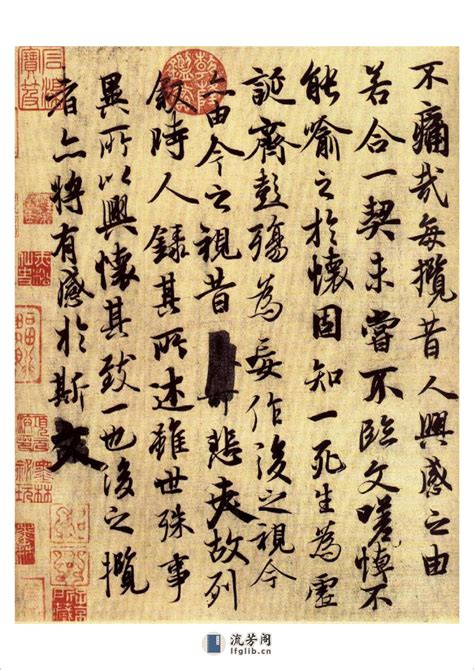 不痛哉每攬昔人興感之由
若合一契未嘗不臨文嗟悼不
能喻之於懷固知一死生為虛
誕齊彭殤為妄作後之視今
亦由今之視昔悲夫故列
敘時人錄其所述雖世殊事
異所以興懷其致一也後之攬
者亦將有感於斯文
流芳阁
lfglib.cn